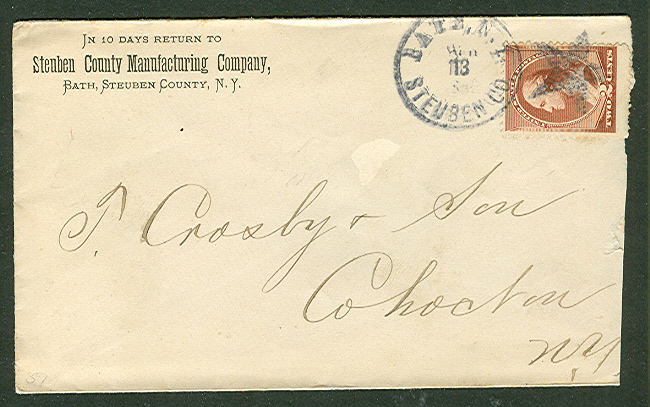 IN 10 DAYS RETURN TO
Steuben County Manufacturing Company,
BATH, STEUBEN COUNTY, N. Y.
BATH, N.Y.
13
STEUBEN CO.
TWO 2 CENTS
T Crosby & Son
Cohocton
NY
57